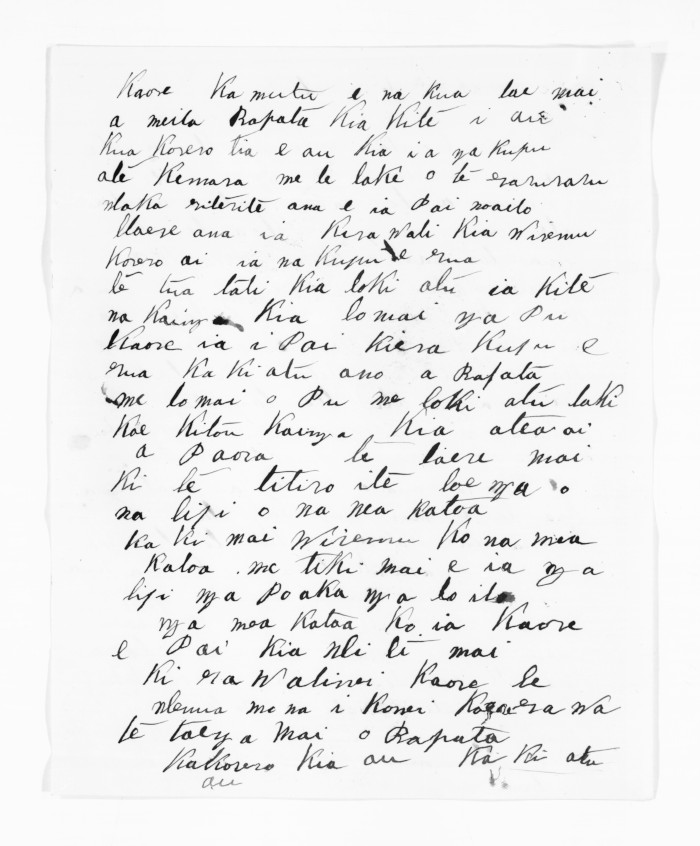 Kaore Ka mutu e na kua tae mai
a meita Rapata Kia Kite i au
kua Korero tia e au Kia ia nga kupu
ate Kemara me te taki o te raruraru
riterite ana e ia Pai
Haere ana ia Kia Wiremu
Korero ai ia na Kupu e rua
te tua tati Kia toki atu ia Kite
na Kainga Kia tomai nga Pu
Kaore ia i Pai Kiera Kupu e
rua Ka Ki atu ano a Rapata
me tomai o Pu me toki atu taki
Koe Kitou Kainga Kia atea ai
a Paora te taere mai
Ki te titiro ite toenga o
na tipi o na mea katoa
Ka Ki mai Wiremu Ko na mea
Katoa me tiki mai e ia nga
tipi nga Poaka nga
nga mea Katoa Ko ia Kaore
e Pai Kia mai
Ki era Kaore te
me na i Konei
te taenga Mai o Rapata
Ka Korero Kia au Ka Ki atu
au